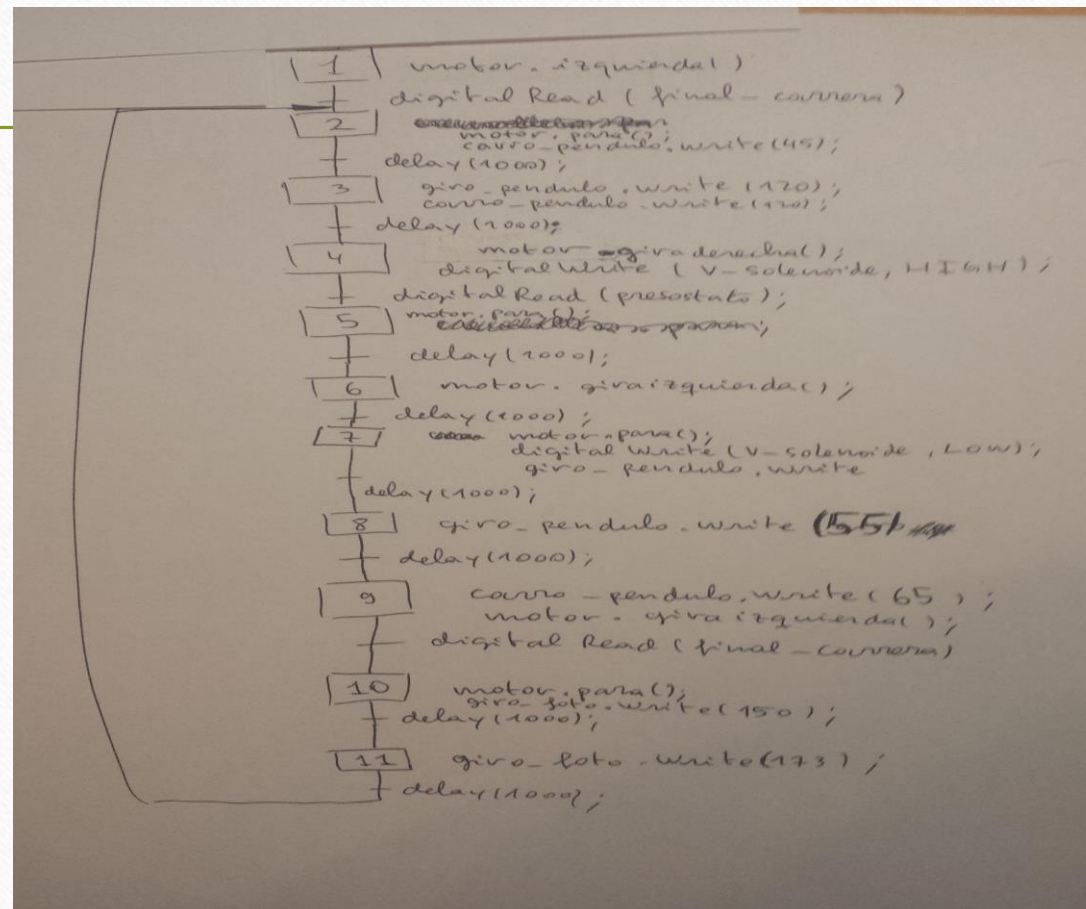 1 motor.izquierda()
digitalRead (final-carrera)
2
motor.para();
carro-pendulo.write(45);
delay(1000);
3 giro-pendulo.write(120);
carro-pendulo.write(120);
delay(1000);
4 motor giraderecha();
digitalWrite (V-solenoide, HIGH);
digitalRead (presostato);
5 motor.para();
delay(1000);
6 motor.giraizquierda();
delay(1000);
7 motor.para();
digitalWrite (V-solenoide, LOW);
giro-pendulo.write
delay(1000);
8 giro-pendulo.write (55)
delay(1000);
9 carro-pendulo.write(65);
motor.giraizquierda();
digitalRead (final-carrera)
10 motor.para();
giro-foto.write(150);
delay(1000);
11 giro-foto.write(173);
delay(1000);